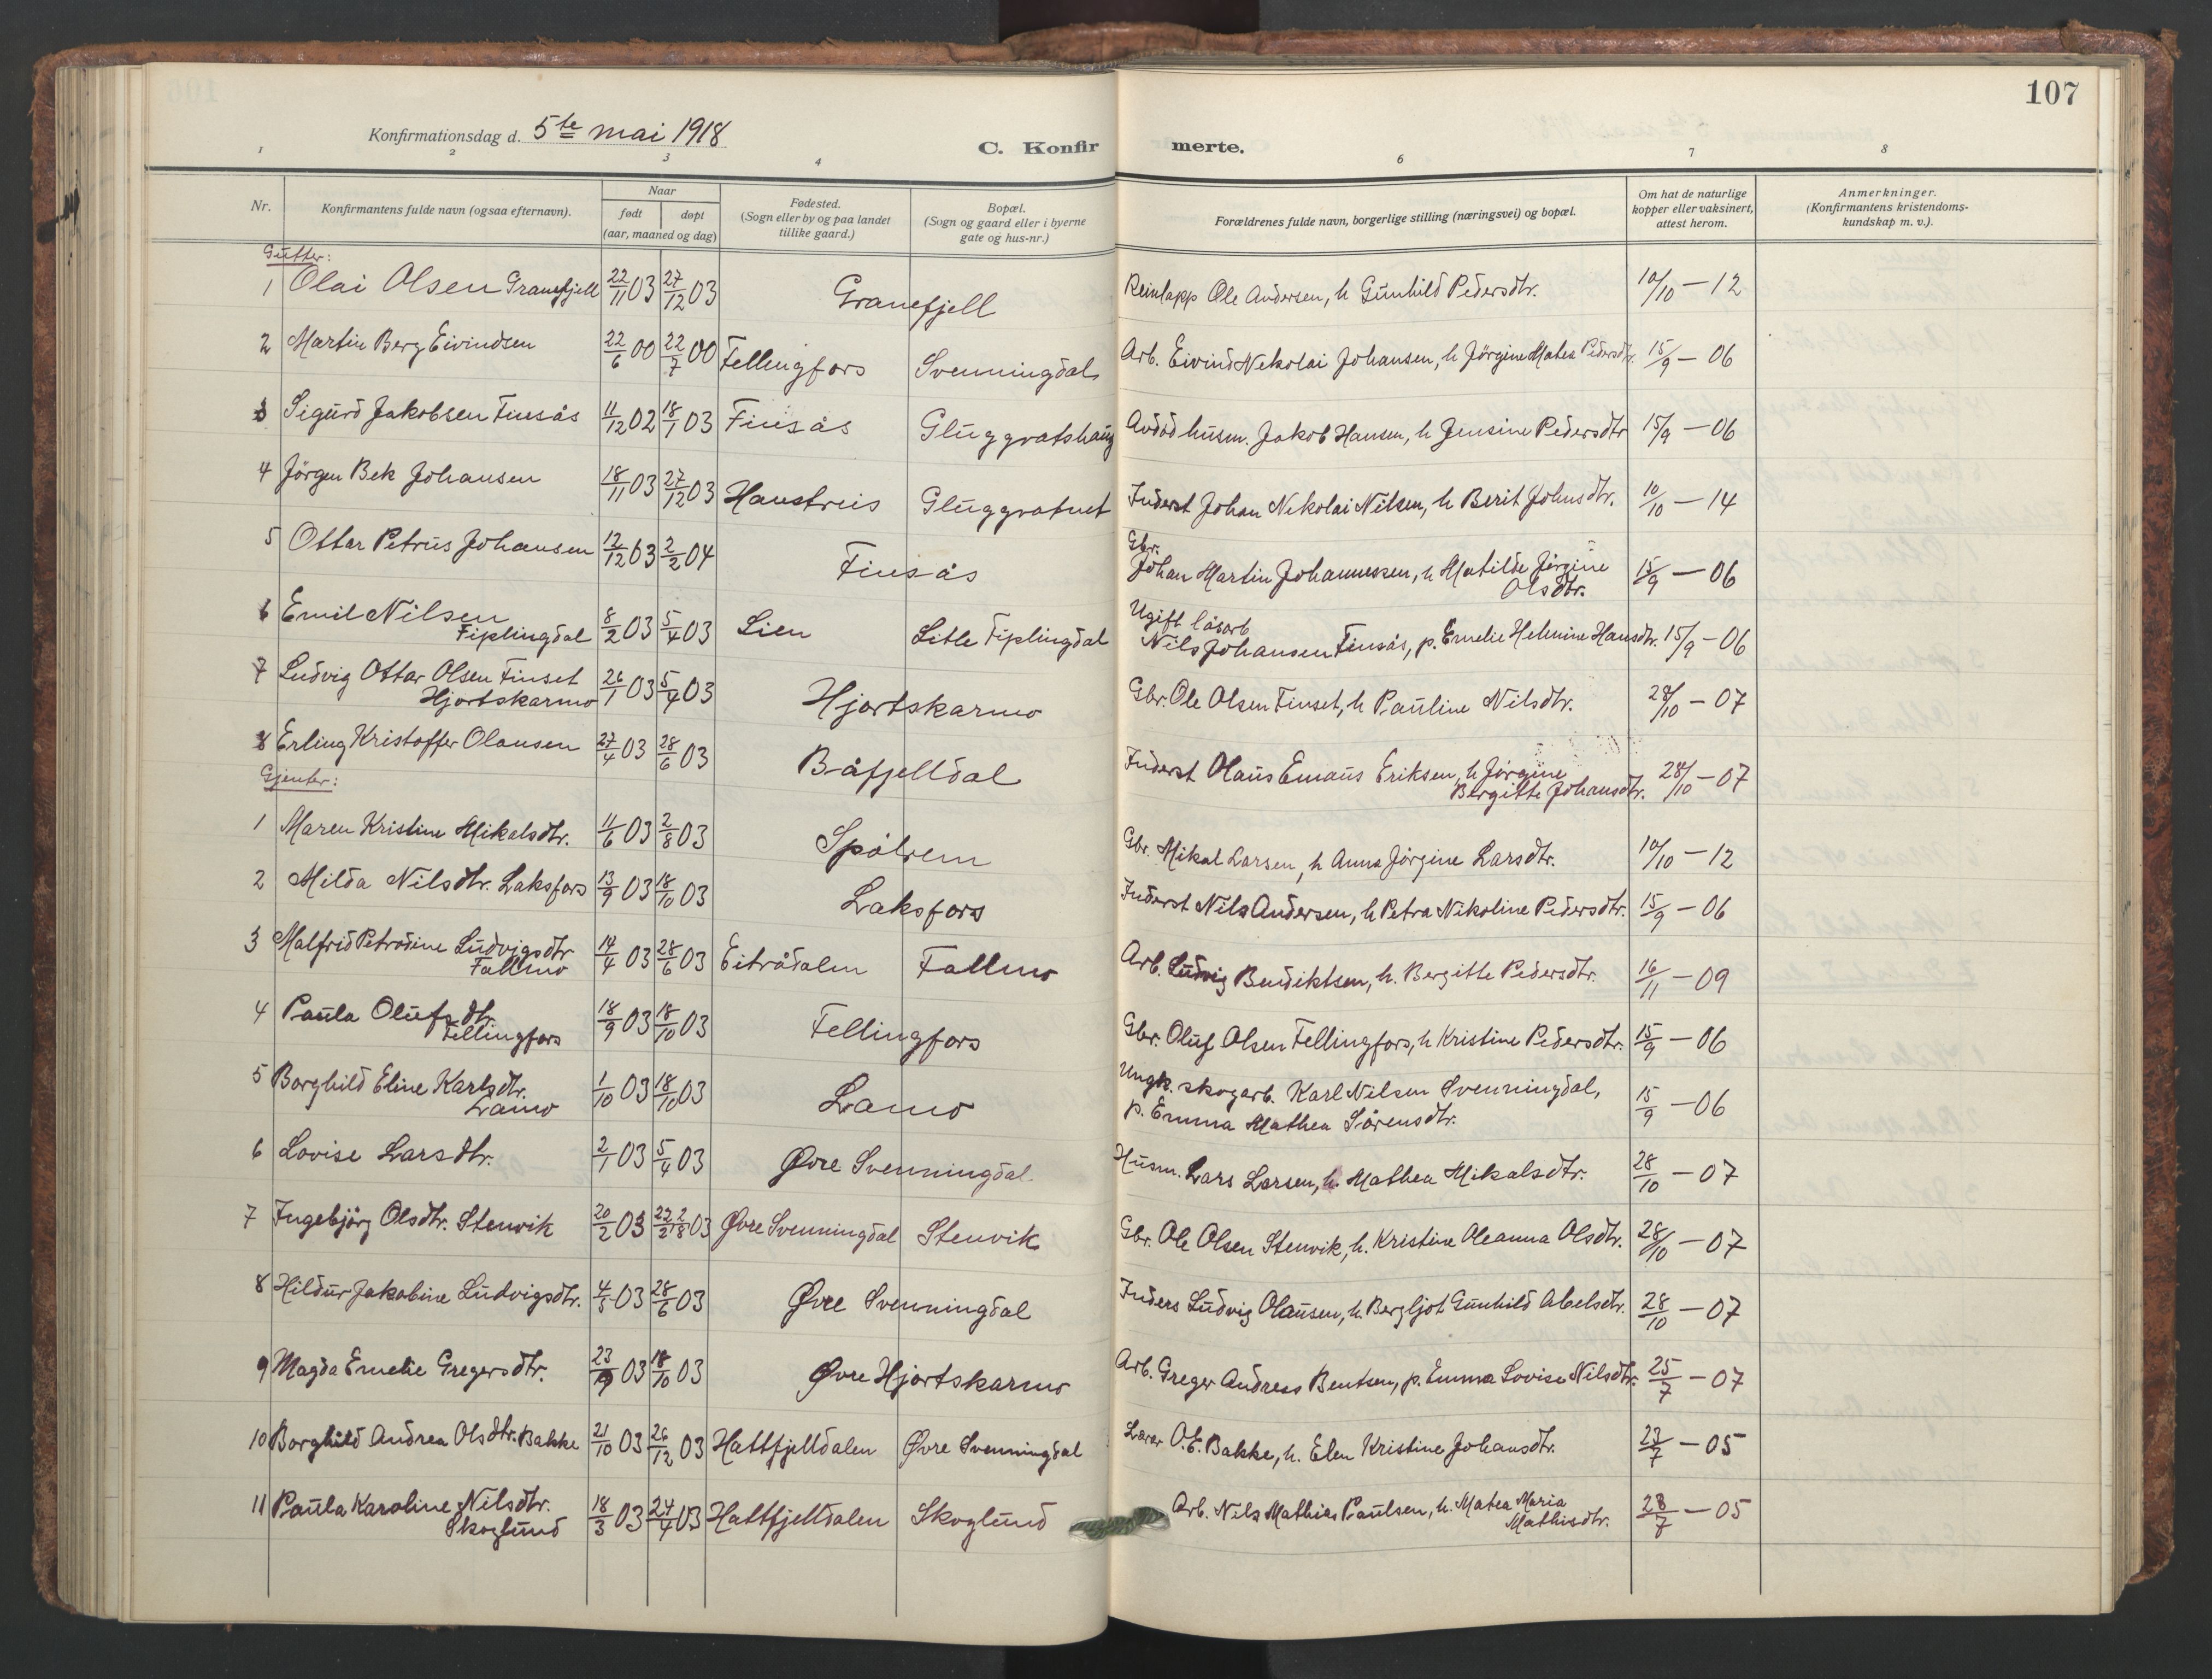 107
Konfirmationsdag d. 5te mai 1918
C. Konfir merte.
1 2 3 4 6 7 8
Nr.
Konfirmantens fulde navn (ogsaa efternavn).
Naar
født døpt
(aar, maaned og dag)
Fødested.
(Sogn eller by og paa landet
tillike gaard.)
Bopæl.
(Sogn og gaard eller i byerne
gate og hus-nr.)
Forældrenes fulde navn, borgerlige stilling (næringsvei) og bopæl.
Om hat de naturlige
kopper eller vaksinert,
attest herom.
Anmerkninger.
(Konfirmantens kristendoms-
kundskap m. v.).
Gutter:
1 Olai Olsen Granefjell 22/11 03 27/12 03 Granefjell Reinlapp Ole Andersen, h Gunhild Pedersdtr. 10/10 – 12
2 Martin Berg Eivindsen 22/6 00 22/7 00 Fellingfors Svenningdal Arb. Eivind Nekolai Johansen, h Jörgine Matea Pedersdtr. 15/9 – 06
3 Sigurd Jakobsen Finsås 11/12 02 18/1 03 Finsås Gluggvatshaug Avdöd husm. Jakob Hansen, h Jensine Pedersdtr 15/9 – 06
4 Jörgen Bek Johansen 18/11 03 27/12 03 Haustreis Gluggvatnet Inderst Johan Nekolai Nilsen, h Berit Johnsdtr. 10/10 – 14
5 Ottar Petrus Johansen 12/12 03 2/2 04 Finsås Gbr.
Johan Martin Johannessen, h Matilde Jörgine
Olsdtr. 15/9 – 06
6 Emil Nilsen
Fiplingdal 8/2 03 5/4 03 Lien Litle Fiplingdal Ugift løsarb
Nils Johansen Finsås, p. Emelie Helmine Hansdtr. 15/9 – 06
7 Ludvig Ottar Olsen Finset
Hjortskarmo 26/1 03 5/4 03 Hjortskarmo Gbr. Ole Olsen Finset, h Pauline Nilsdtr. 28/10 – 07
8 Erling Kristoffer Olausen 27/4 03 28/6 03 Båfjelldal Inderst Olaus Emaus Eriksen, h Jörgine
Bergitte Johansdtr. 28/10 – 07
Gjenter:
1 Maren Kristine Mikalsdtr. 11/6 03 2/8 03 Spålrem Gbr. Mikal Larsen, h Anna Jörgine Larsdtr. 10/10 – 12
2 Milda Nilsdtr. Laksfors 13/9 03 18/10 03 Laksfors Inderst Nils Andersen, h Petra Nikoline Pedersdtr. 15/9 – 06
3 Malfrid Petrodine Ludvigsdtr
Fallmo 14/4 03 28/6 03 Eitrådalen Fallmo Arb. Ludvig Bendiktsen, h. Bergitte Pedersdtr. 16/11 – 09
4 Paula Olufsdtr.
Fellingfors 18/9 03 18/10 03 Fellingfors Gbr. Oluf Olsen Fellingfors, h Kristine Pedersdtr. 15/9 – 06
5 Borghild Eline Karlsdtr.
Lamo 1/10 03 18/10 03 Lamo Ungk. skogarb. Karl Nilsen Svenningdal,
p. Emma Mathea Sörensdtr. 15/9 – 06
6 Lovise Larsdtr. 2/1 03 5/4 03 Øvre Svenningdal Husm. Lars Larsen, h. Mathea Mikalsdtr. 28/10 – 07
7 Ingebjörg Olsdtr. Stenvik 20/2 03 22/2 2/8 03 Øvre Svenningdal Stenvik Gbr. Ole Olsen Stenvik, h. Kristine Oleanna Olsdtr. 28/10 – 07
8 Hildur Jakobine Ludvigsdtr. 4/5 03 28/6 03 Øvre Svenningdal Inders Ludvig Olausen, h. Bergljot Gunhild Abelsdtr. 28/10 – 07
9 Magda Emelie Gregersdtr. 23/9 03 18/10 03 Øvre Hjortskarmo Arb. Greger Andreas Bentsen, p. Emma Lovise Nilsdtr. 25/7 – 07
10 Borghild Andrea Olsdtr. Bakke 21/10 03 26/12 03 Hattfjelldalen Øvre Svenningdal Lærer O. E. Bakke, h. Elen Kristine Johansdtr. 23/7 – 05
11 Paula Karoline Nilsdtr.
Skoglund 18/3 03 24/4 03 Hattfjelldalen Skoglund Arb. Nils Mathias Paulsen, h. Matea Maria
Mathisdtr. 28/7 – 05